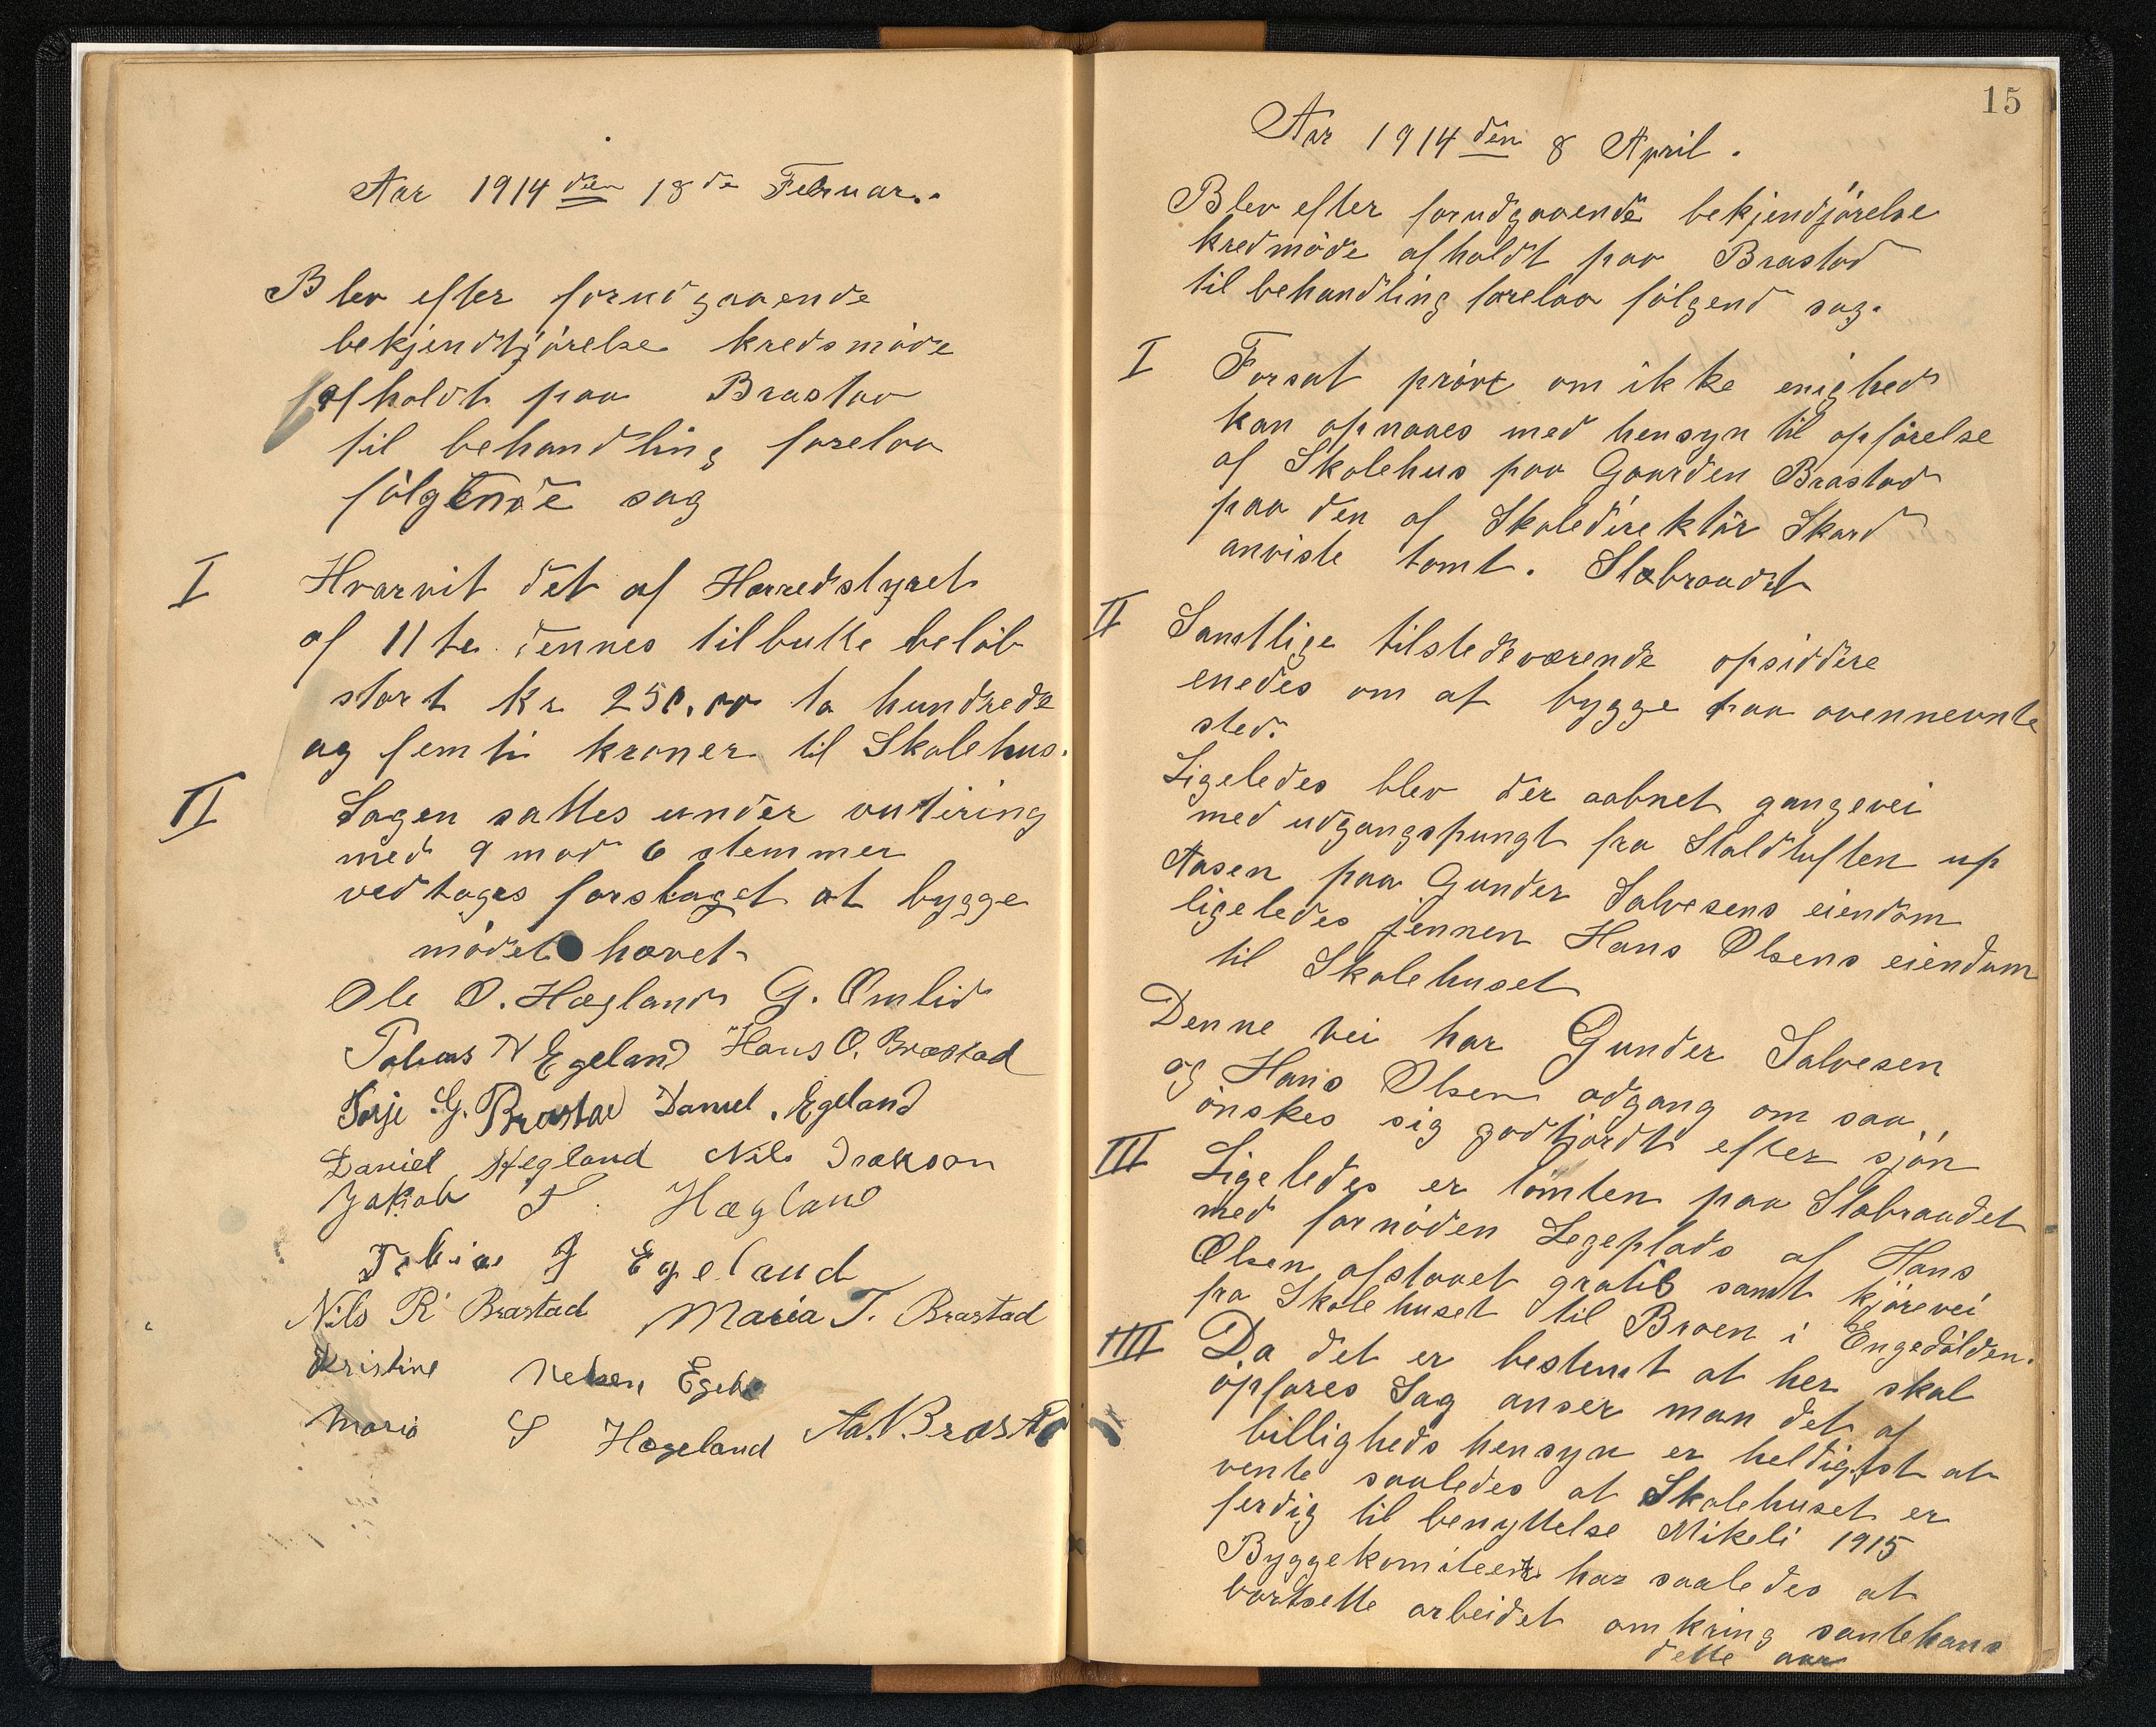 Aar 1914 den 18de Februar.
Blev efter forudgaaende
bekjendtjörelse kredsmöde
afholdt paa Brastad
til behandling forelaa
fölgende sag
I Hvorvit det af Herredstyret
af 11te dennes tilbutte belöb
stort kr 250.00 to hundrede
og femti kroner til Skolehus.
II Sagen sattes under voitering
med 9 mod 6 stemmer
vedtoges forslaget at bygge
mödet hævet
Ole O. Hægland G. Omlid
Tobias N Egeland Hans O. Brastad
Terje G. Brastad Daniel Egeland
Daniel Hegland Nils Isakson
Jakob T. Hægland
Tobias J Egeland
Nils R Brastad Maria T. Brastad
Kristine Nelsen Egel
Maria S Hægeland Aa. Brasta
15
Aar 1914 den 8 April.
Blev efter forudgaaende bekjendjörelse
kredmöde afholdt paa Brastad
til behandling forelaa fölgend sag.
I Forsat prövt om ikke enighed
kan opnaaes med hensyn til opförelse
af Skolehus paa Gaarden Brastad
paa den af Skoledirektör Skard
anviste tomt. Slobraadet
II Samtlige tilstedeværende opsiddere
enedes om at bygge paa ovennevnte
sted.
Ligeledes blev der aabnet gangevei
med udgangspungt fra Staldtuften up
Aasen paa Gunder Salvesens eiendom
ligeledes jennem Hans Olsens eiendom
til Skolehuset
Denne vei har Gunder Salvesen
og Hans Olsen adgang om saa
önskes sig godtjordt efter sjön
III Ligeledes er tomten paa Slobraadet
med fornöden Legeplads af Hans
Olsen afstaaet gratis samt kjörevei
fra Skolehuset til Broen i Engedölden.
IIII Da det er bestemt at her skal
opföres Sag anser man det af
billigheds hensyn er heldigst at
vente saaledes at Skolehuset er
ferdig til benyttelse Mikeli 1915
Byggekomiteen har saaledes at
bortsette arbeidet omkring santehans
dette aar